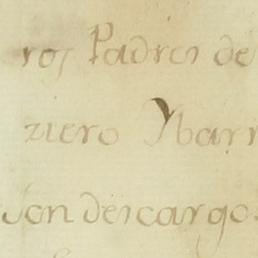 ros Padres de
ziero Ybarr
son descargo